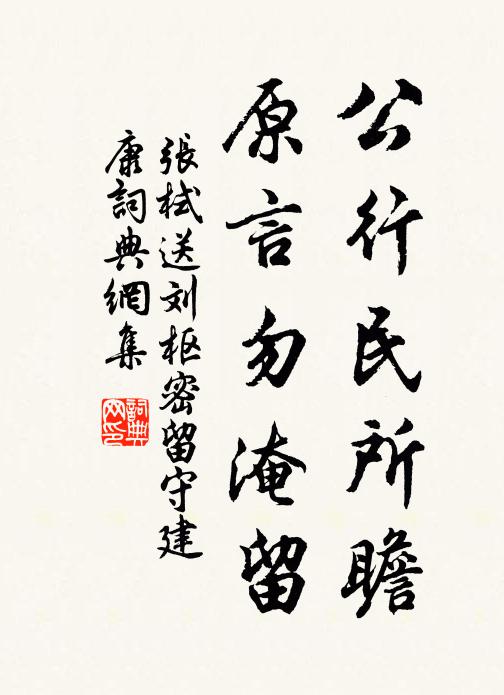 公行民所瞻
原言勿淹留
張栻送刘枢密留守建
康詞典網集
詞典
网印